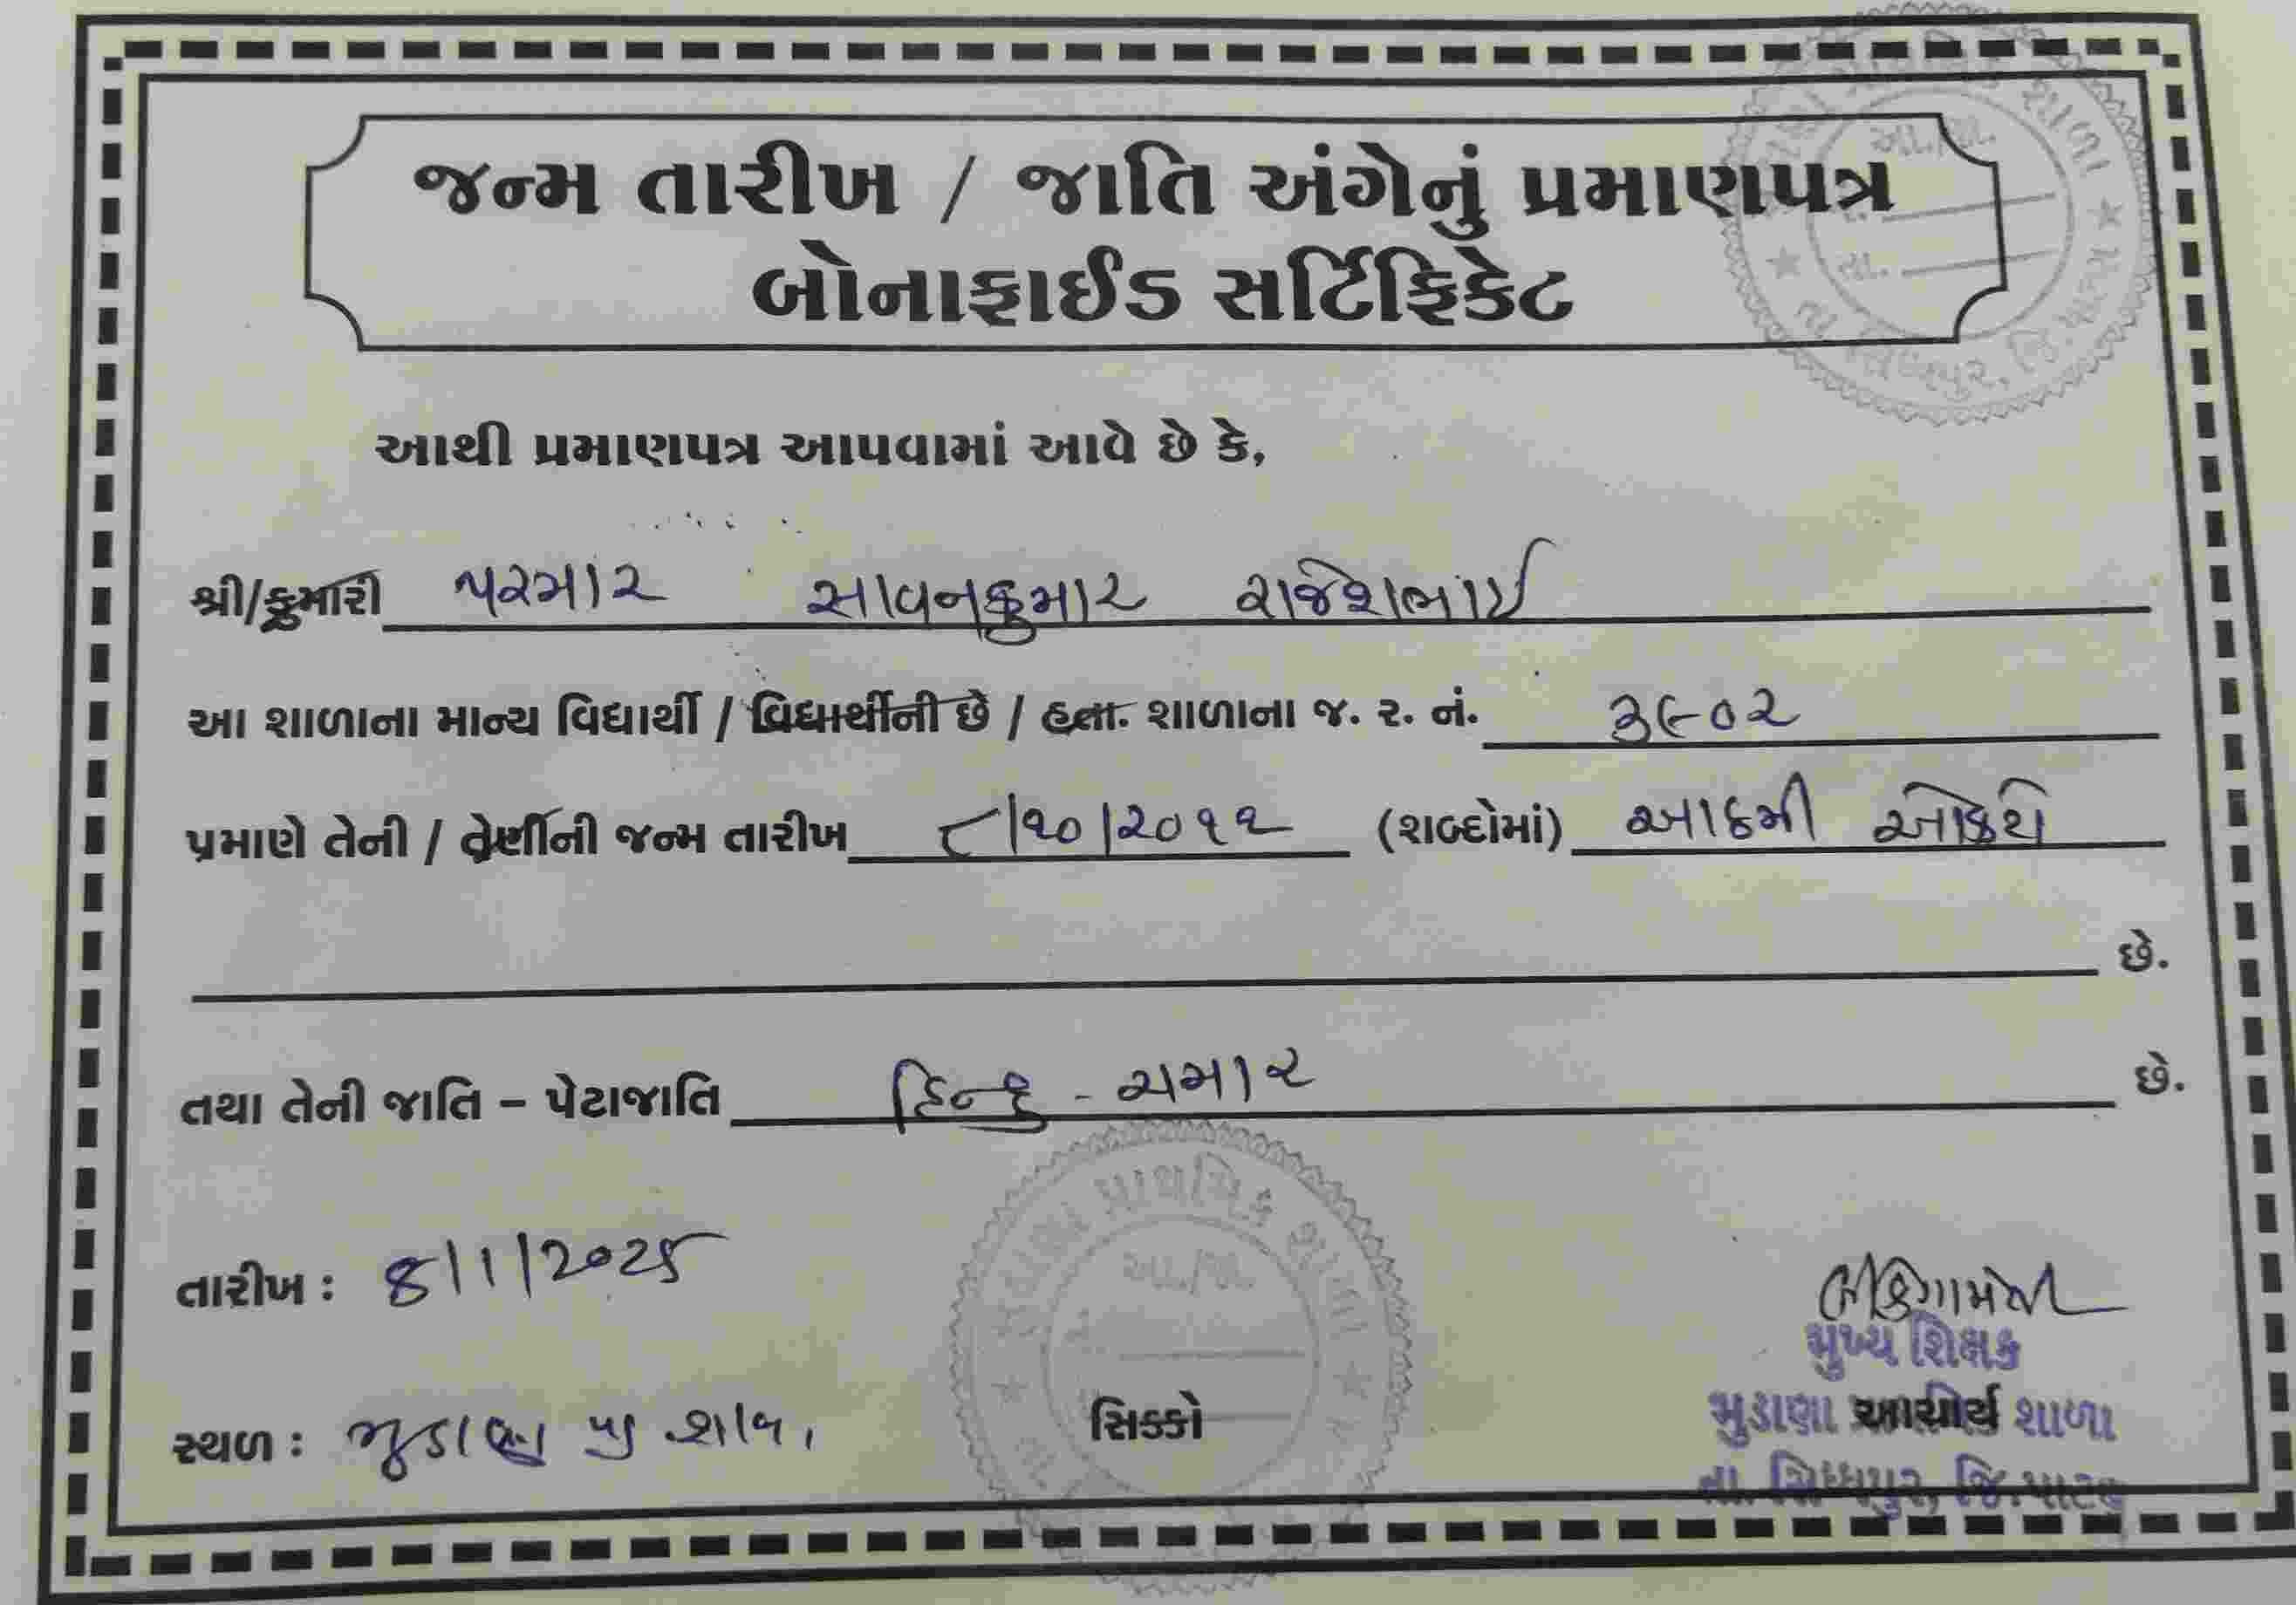 જન્મ તારીખ / જાતિ અંગેનું પ્રમાણપત્ર
બોનાફાઈડ સર્ટિફિકેટ
આથી પ્રમાણપત્ર આપવામાં આવે છે કે,
શ્રી/કુમારી પરમાર સાવનકુમાર રાજેશભાઈ
આ શાળાના માન્ય વિદ્યાર્થી / વિદ્યાર્થીની છે / હતા. શાળાના જ. ર. નં. ૩૯૦૨
પ્રમાણે તેની / તેણીની જન્મ તારીખ ૮/૧૦/૨૦૧૧ (શબ્દોમાં) આઠમી ઓક્ટો
છે.
તથા તેની જાતિ – પેટાજાતિ હિન્દુ - ચમાર છે.
તારીખ : 8/1/2025
સ્થળ : મુડાણા પ્રા શાળા
સિક્કો
મુખ્ય શિક્ષક
મુડાણા આચાર્ય શાળા
તા. સિધ્ધપુર, જિ.પાટણ
પ્રાથમિક શાળા
આ./જા.